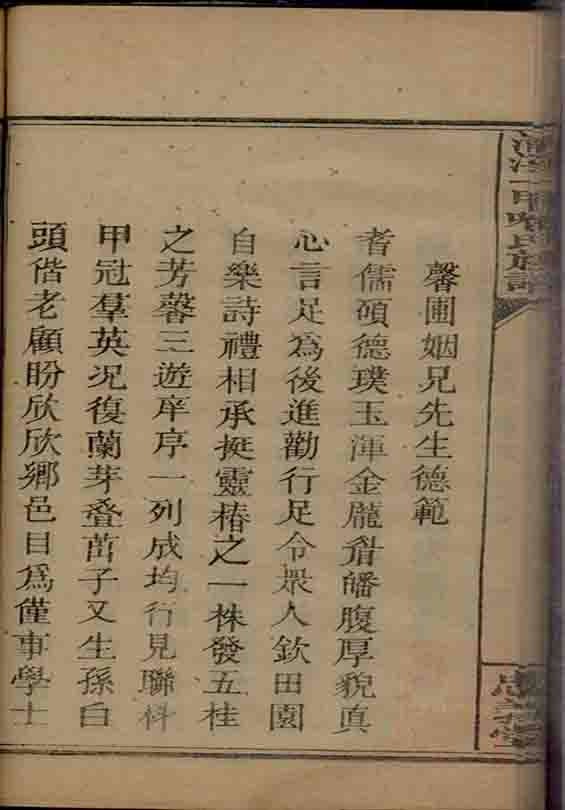 甲
氏族譜
忠義堂
馨圃姻兄先生德範
耆儒碩德璞玉渾金龎眉皤腹厚貌真
心言足為後進勸行足令眾人欽田園
自樂詩禮相承挺靈椿之一株發五桂
之芳馨三遊庠序一列成均行見聯科
甲冠羣英况復蘭芽叠茁子又生孫白
頭偕老顧盼欣欣鄉邑目為僅事學士